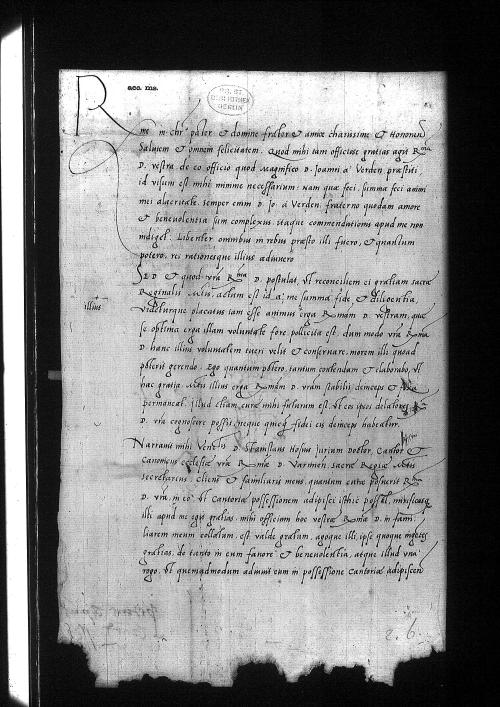 acc. ms.
R
me in chr̄o pater & domine frater & amice charissime & Honoran
Salutem & omnem felicitatem. Quod mihi tam officiose gratias agit Rma
D. vestra de eo officio quod magnifico D. Joanni a Verden praestiti
id visum est mihi minime necessarium. nam quae feci, summa feci animi
mei alacritate. semper enim D. Jo. a Verden fraterno quodam amore
& benevolentia sum complexus. itaque commendationis apud me non
indiget. Libenter omnibus in rebus praesto illi fuero, & quantum
potero, rei rationesque illius adiuvero
SED & quod vra Rma D. postulat, Vt reconciliem ei gratiam sacrae
Reginalis Mtis, actum est id a me summa fide & diligentia,
illius
Videturque placatus iam esse animus erga Rmam D. vestram, quae
se optima erga illam voluntate fore pollicita est. dum modo vra Rma
D. hanc illius voluntatem tueri velit & conservare, morem illi quoad
poterit gerendo. Ego quantum potero, tantum contendam & elaborabo, Vt
haec gratia Mtis illius erga Rmam D. vram stabilis deinceps &
permaneat. Illud etiam curae mihi futurum est, Vt eos ipsos delatores
D. vra cognoscere possit, neque fidei eis deinceps habeatur.
Narravit mihi Venlis D. Stanislaus Hosius jurium Doctor, Cantor &
Canonicus ecclesiae vrae Rmae D. Varmien. sacrae Regiae Mtis
secretarius, cliens & familiaris meus, quantum curae posuerit Rma
D. vra, in eo Vt Cantoriae possessionem adipisci isthic posset,
illi apud me egit gratias, mihi officium hoc vestrae Rmae D. in fami
liarem meum collatum, est valde gratum, agoque illi, ipse quoque ingentes
gratias, de tanto in eum favore & benevolentia, atque illud vna
rogo, Vt quemadmodum adiuvit eum in possessione Cantoriae adipiscen